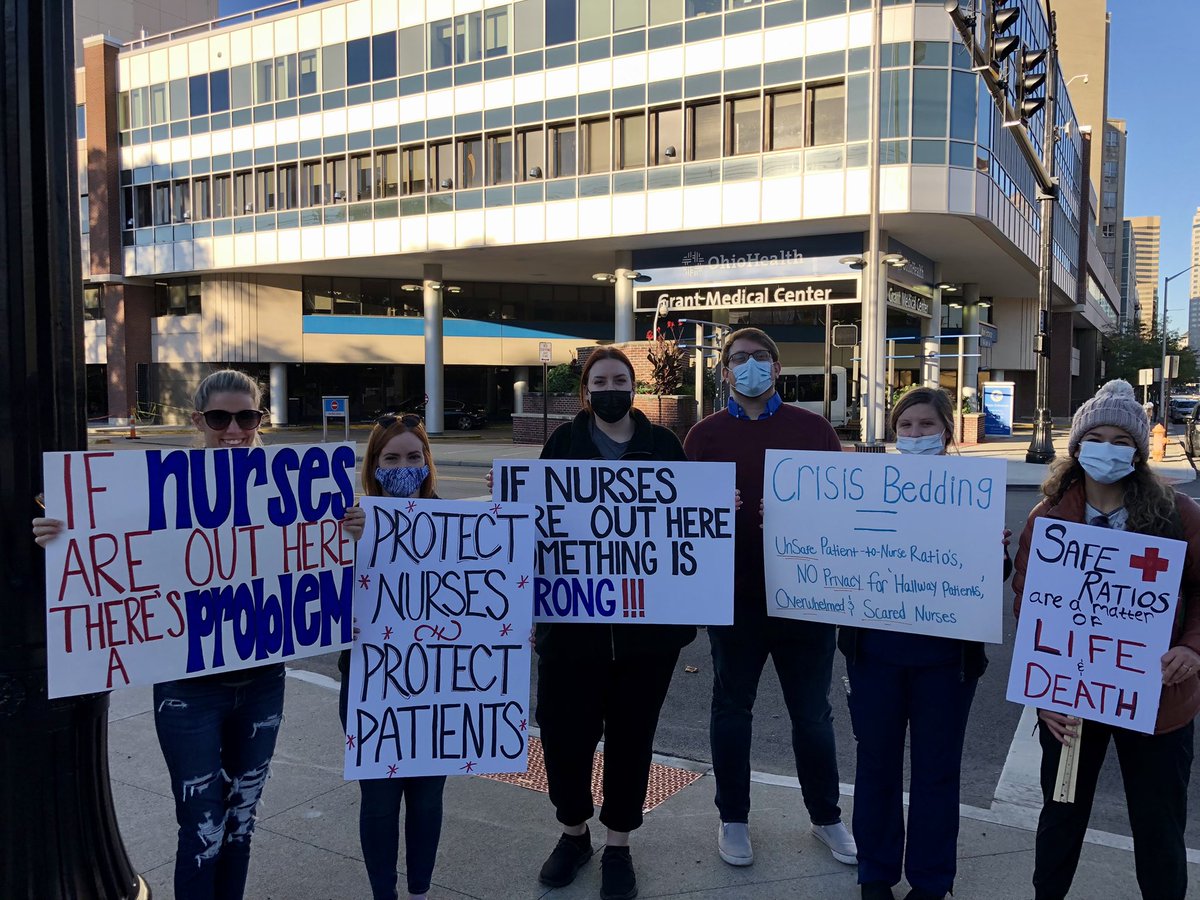 OhioHealth
Grant Medical Center
IF nurses
ARE OUT HERE
THERE'S problem
A
PROTECT
NURSES
&
PROTECT
PATIENTS
IF NURSES
RE OUT HERE
OMETHING IS
RONG!!!
CRISIS Bedding
=
UnSafe Patient-to-Nurse Ratio's,
NO Privacy for 'Hallway Patients',
Overwhelmed & Scared Nurses
SAFE
RATIOS
are a matter
OF
LIFE
&
DEATH